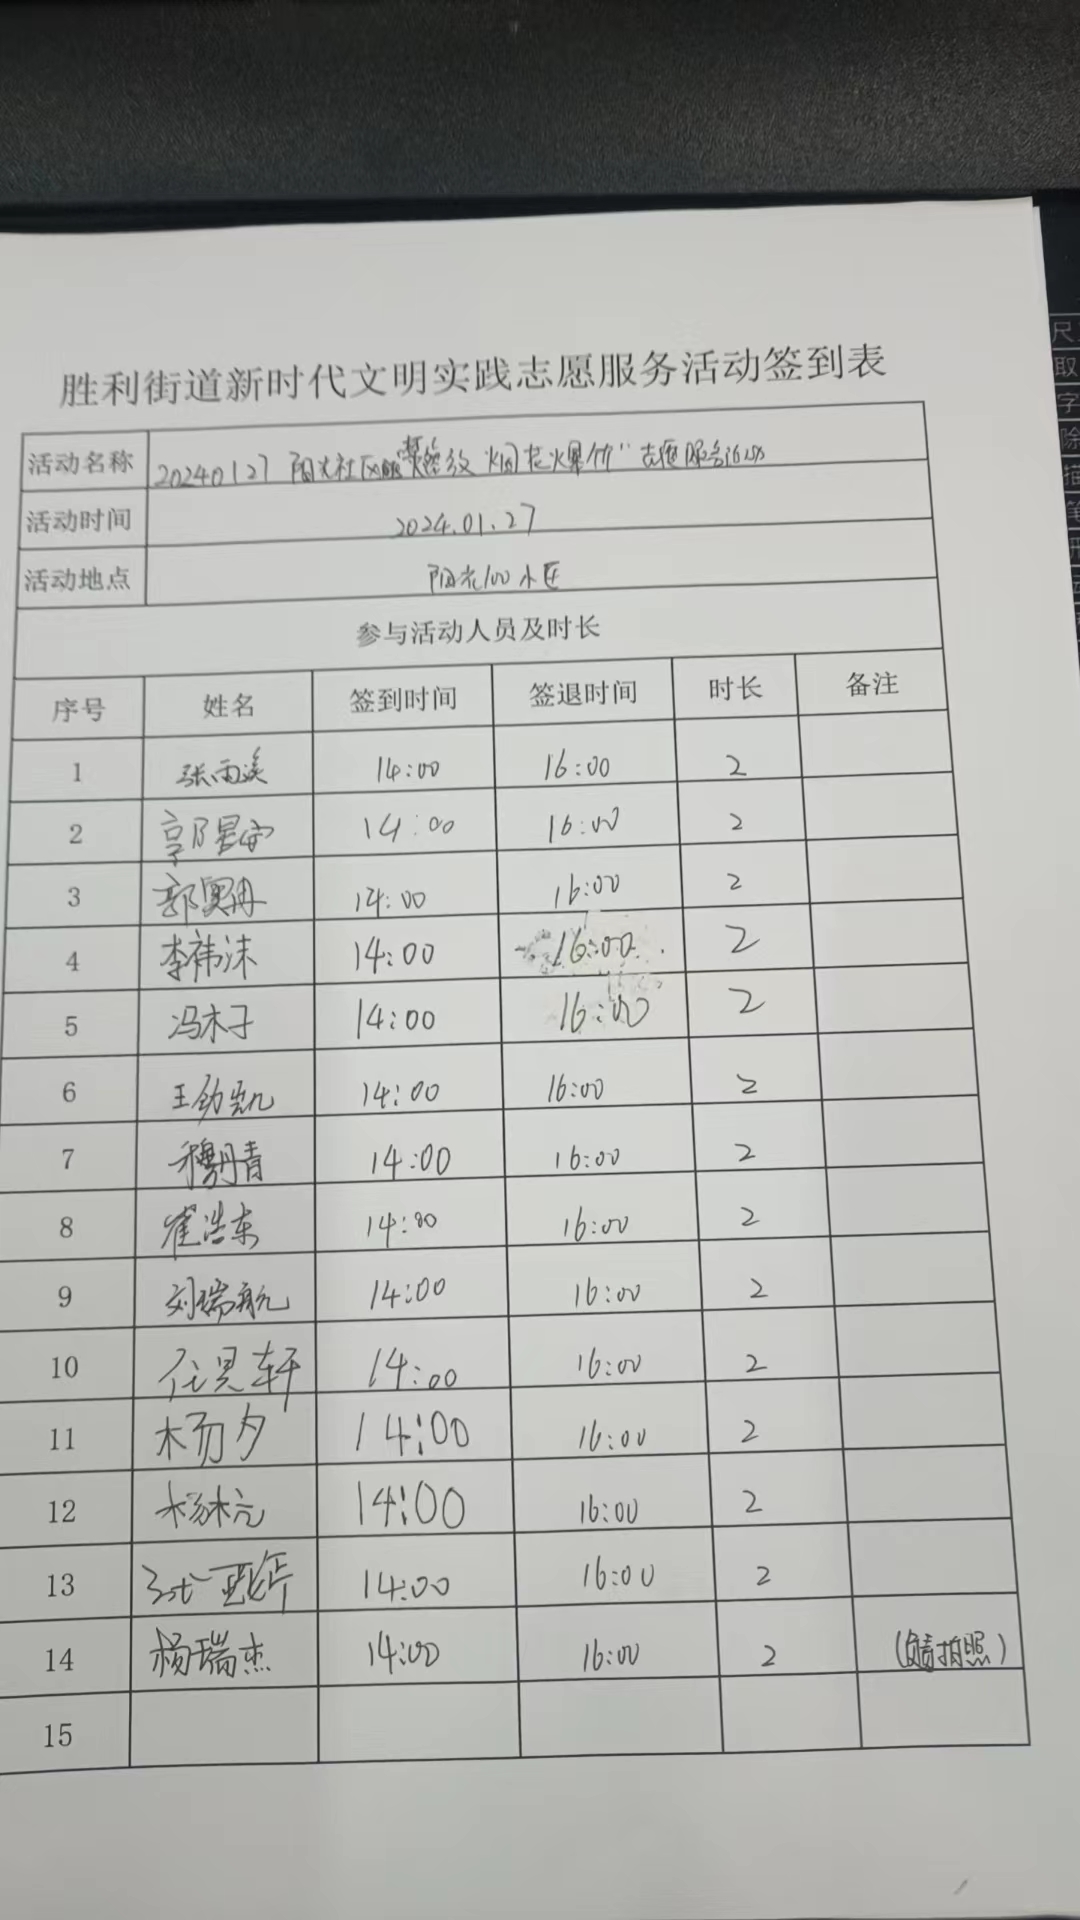 胜利街道新时代文明实践志愿服务活动签到表
活动名称 20240127 阳光社区 禁燃放烟花爆竹"志愿服务活动
活动时间 2024.01.27
活动地点 阳光100小区
参与活动人员及时长
序号 姓名 签到时间 签退时间 时长 备注
1 张雨溪 14:00 16:00 2
2 郭晏安 14:00 16:00 2
3 郭奥冉 14:00 16:00 2
4 李祎沫 14:00 16:00 2
5 冯木子 14:00 16:00 2
6 王劲凯 14:00 16:00 2
7 穆丹青 14:00 16:00 2
8 崔浩东 14:00 16:00 2
9 刘瑞航 14:00 16:00 2
10 任昊轩 14:00 16:00 2
11 杨夕 14:00 16:00 2
12 杨林元 14:00 16:00 2
13 14:00 16:00 2
14 杨瑞杰 14:00 16:00 2 (负责拍照)
15
尺
取
字
除
描
笔